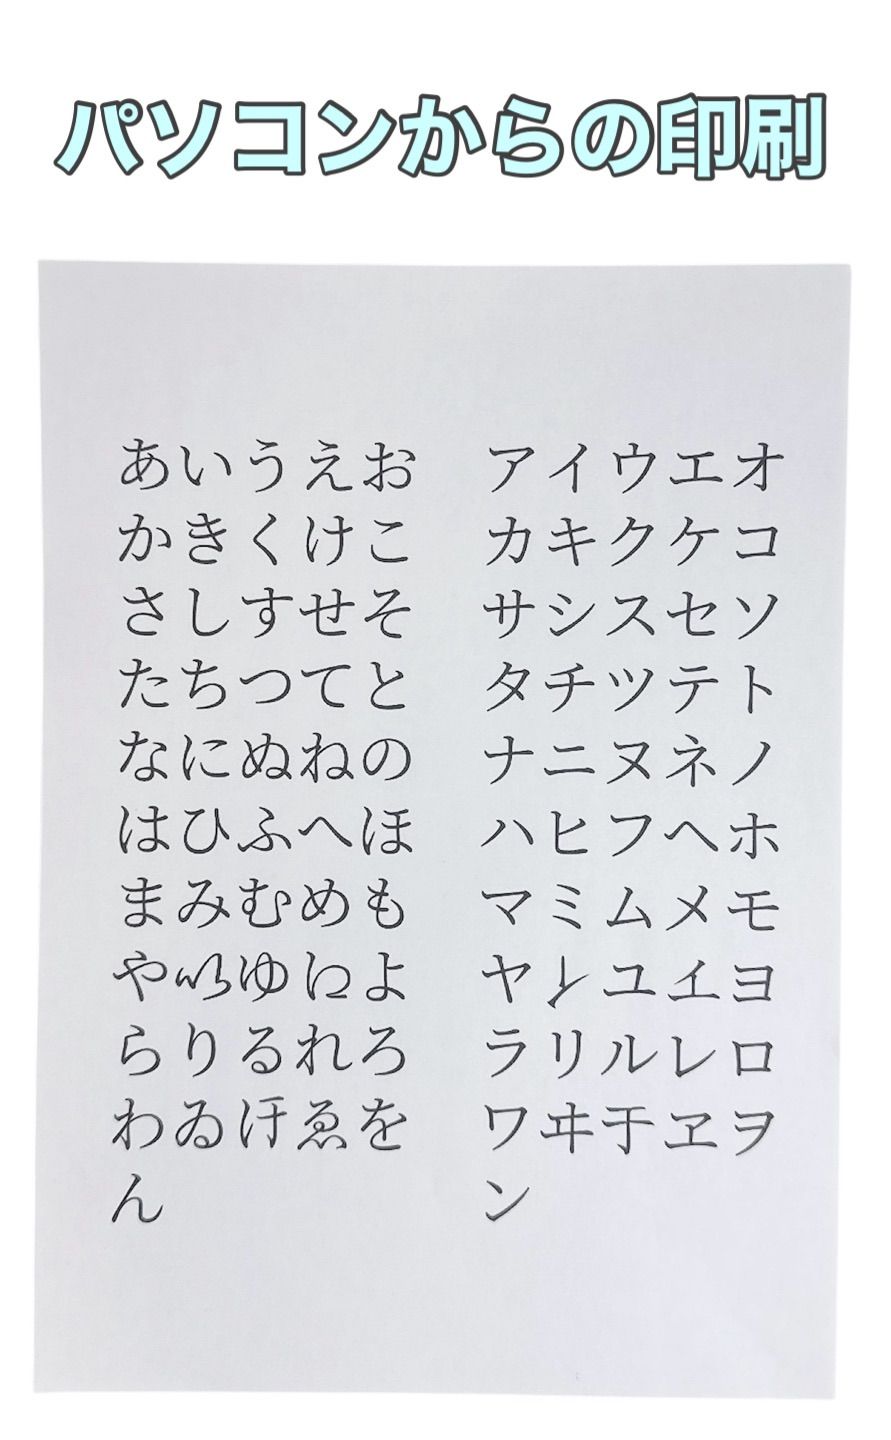 パソコンからの印刷
あいうえお アイウエオ
かきくけこ カキクケコ
さしすせそ サシスセソ
たちつてと タチツテト
なにぬねの ナニヌネノ
はひふへほ ハヒフヘホ
まみむめも マミムメモ
や𛀆ゆ𛀁よ ヤ𛄠ユ𛄡ヨ
らりるれろ ラリルレロ
わゐ𛄟ゑを ワヰ𛄢ヱヲ
ん ン